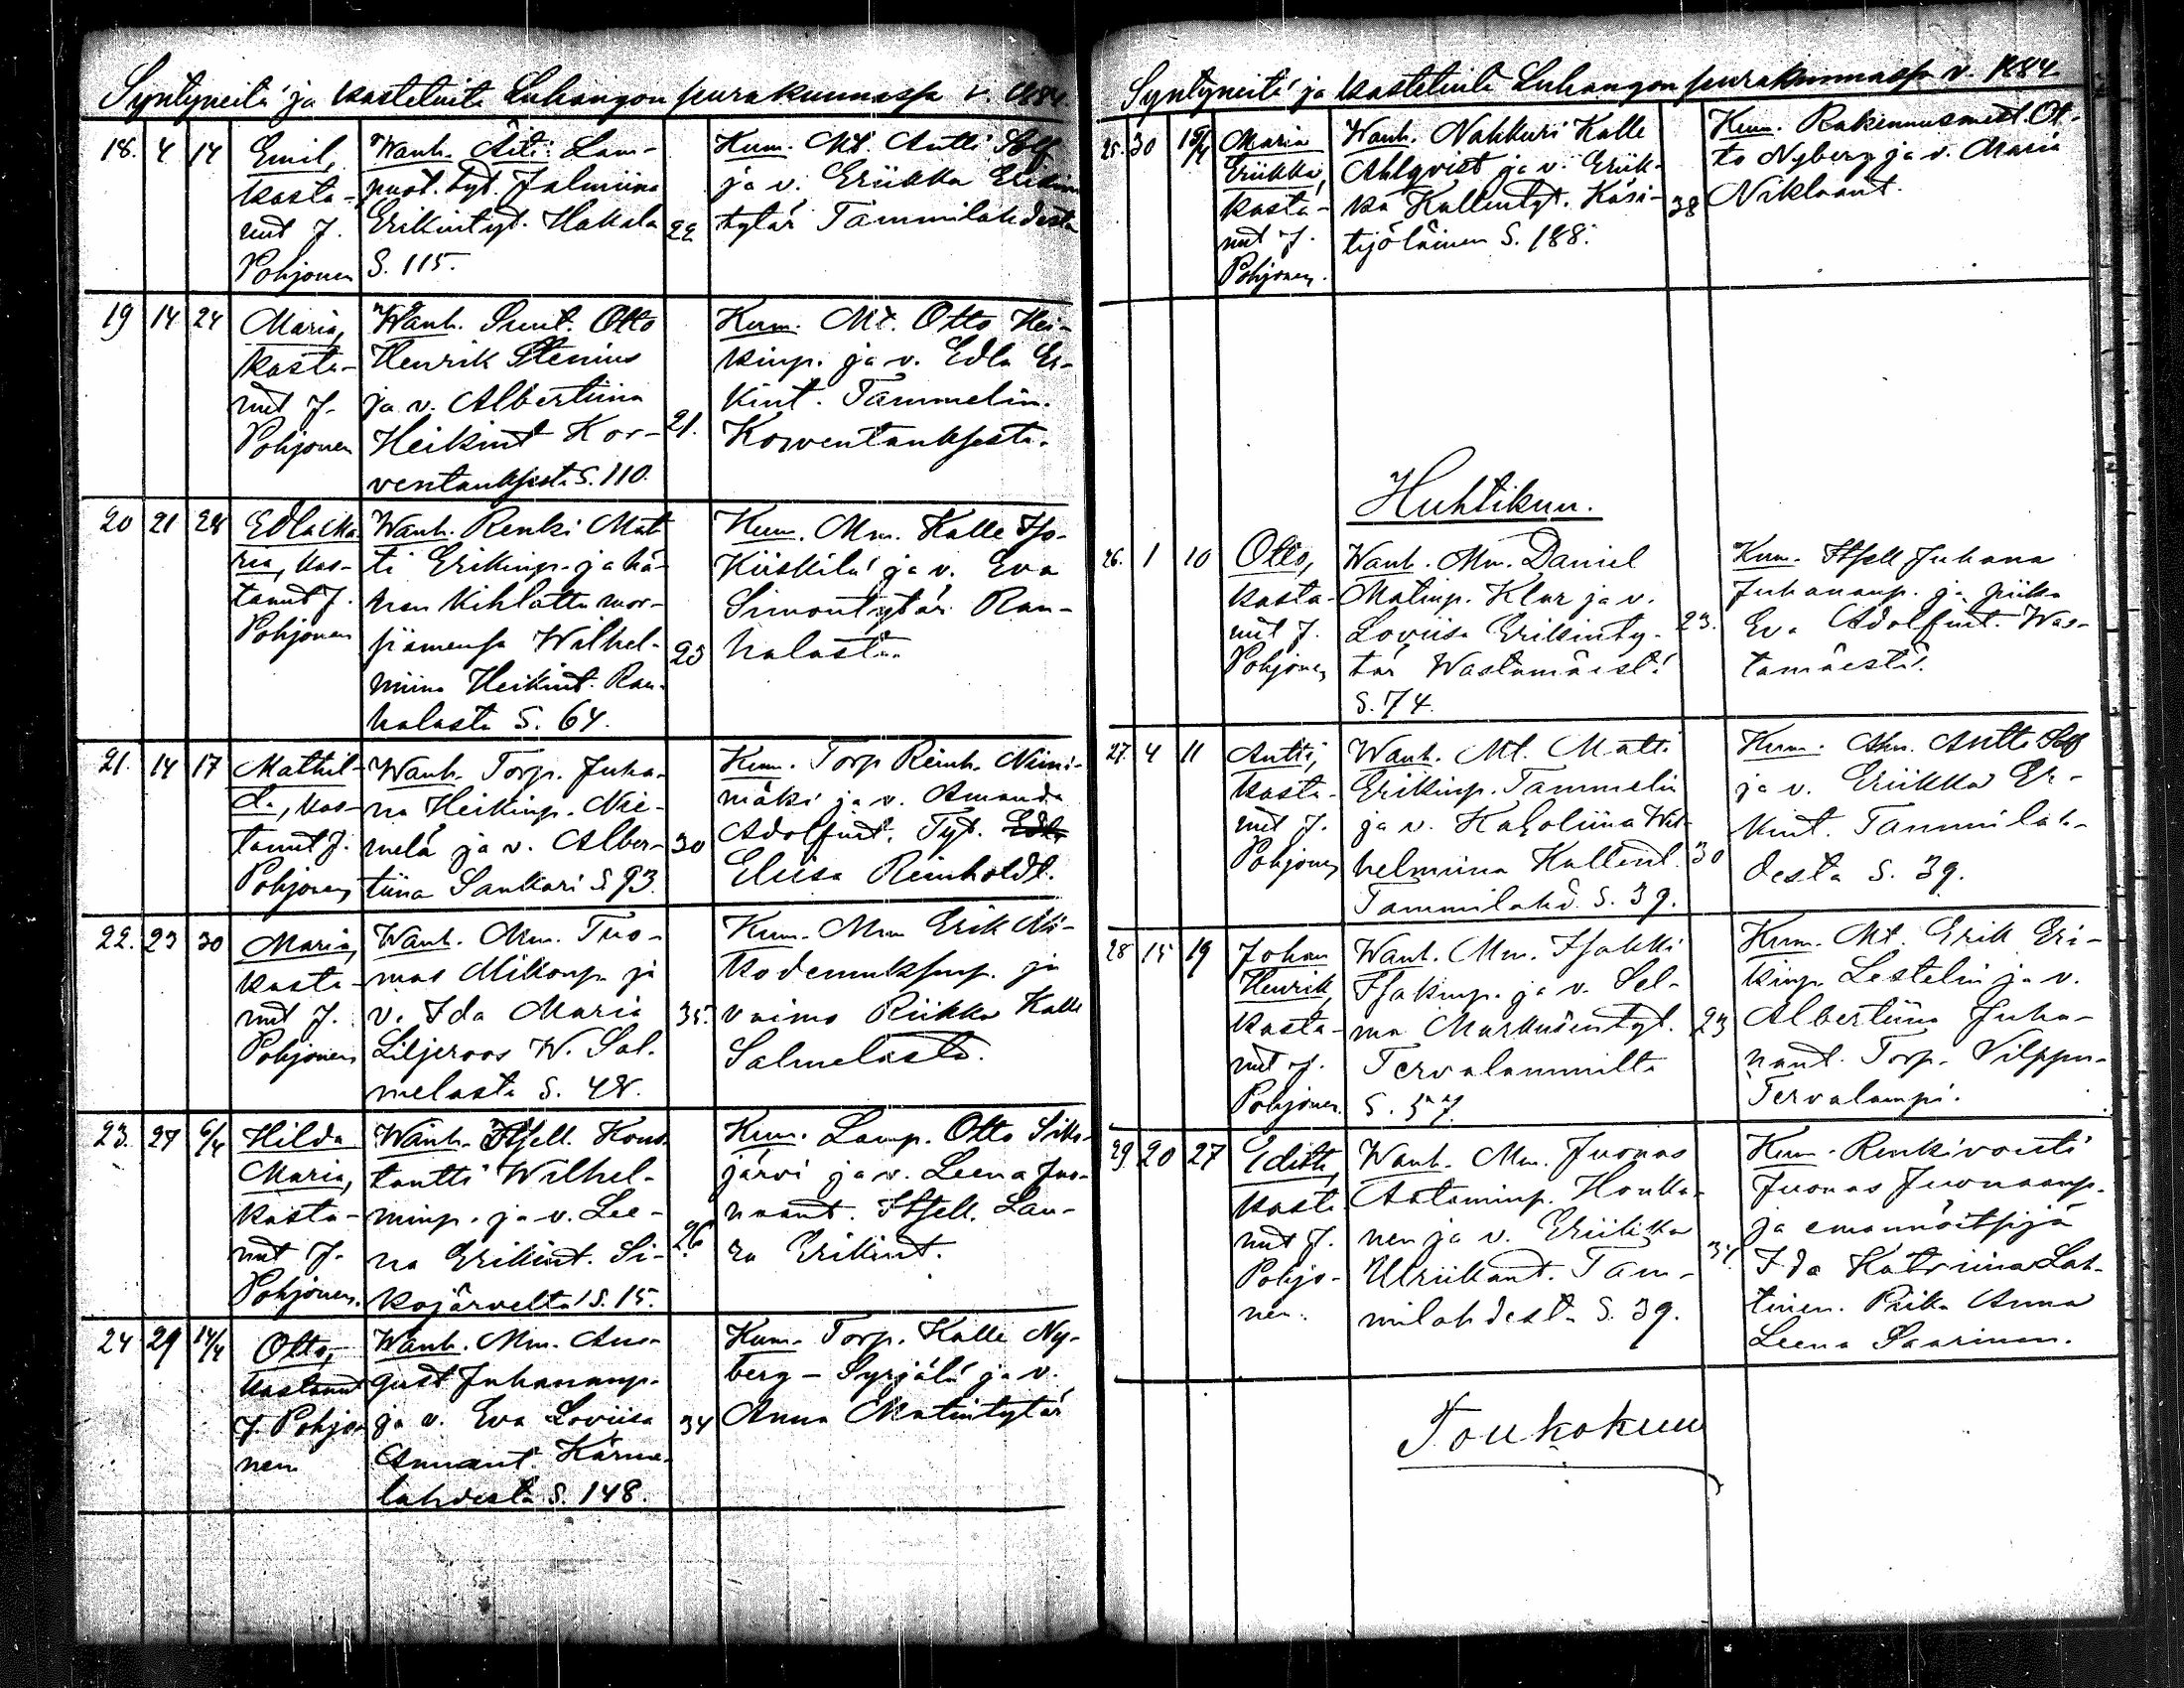 Syntyneitä ja kastetuita Luhangon seurakunnassa v. 1884.
18. 4 14
Emil,
kasta-
nut J.
Pohjonen
Wanh. Äiti: Lam-
puot. tyt. Jalmiina
Erikintyt. Hakala
S. 115.
22
Kum. Mt. Antti Solf
ja v. Eriikka Erikin
tytär Tammilahdesta
19 14 24
Maria,
kasta-
nut J.
Pohjonen
Wanh. Sunt. Otto
Henrik Stenius
ja v. Albertiina
Heikint Kor-
ventaukseta S. 110.
21.
Kum. Mt. Otto Hei-
kinp. ja v. Edla Er-
kint. Tammelin.
Korventauksesta.
20 21 28
Edla Ma
ria, kas-
tanut J.
Pohjonen
Wanh. Renki Mat
ti Erikinp. ja hä-
nen kihlattu mor-
siamensa Wilhel-
miina Heikint. Rau-
halasta S. 64.
25
Kum. Mm. Kalle Iso-
Kiiskilä ja v. Eva
Simontytär Rau-
halasta.
21. 14 17
Mathil-
da, kas-
tanut J.
Pohjonen
Wanh. Torp. Juha-
na Heikinp. Nie-
melä ja v. Alber-
tiina Sankari S 93.
30
Kum. Torp Reinh. Niini-
mäki ja v. Amanda
Adolfint. Tyt. Edla
Eliisa Reinholdt.
22. 23 30
Maria,
kasta-
nut J.
Pohjonen
Wanh. Mm. Tuo-
mas Mikonp. ja
v. Ida Maria
Liljeroos W. Sal-
melasta S. 48.
35.
Kum. Mm Erik Ni-
kodemuksenp. ja
vaimo Riikka Kalle
Salmelasta.
23. 27 6/4
Hilda
Maria,
kasta-
nut J.
Pohjonen.
Wanh. Itsell. Kons-
tantti Wilhel-
minp. ja v. Lee-
na Erikint. Si-
kojärveltä S. 15.
26
Kum. Lamp. Otto Siko-
järvi ja v. Leena Juo-
naant. Itsell. Lau-
ra Erikint.
24 29 14/4
Otto,
kastanut
J. Pohjo-
nen
Wanh. Mm. Au-
gust Juhananp.
ja v. Eva Loviisa
Annant. Kärme-
lahdesta S. 148.
34
Kum. Torp. Kalle Ny-
berg - Syrjälä ja v.
Anna Matintytär
Syntyneitä ja kastetuita Luhangon seurakunnassa v. 1884.
25. 30 15/4
Maria
Eriikka,
kasta-
nut J.
Pohjonen.
Wanh. Nahkuri Kalle
Ahlqvist ja v. Eriik-
ka Kallentyt. Käsi-
työläinen S. 188.
38
Kum. Rakennusmest. Ot-
to Nyberg ja v. Maria
Niklaant.
Huhtikuu.
26. 1 10
Otto,
kasta-
nut J.
Pohjonen
Wanh. Mm. Daniel
Matinp. Klar ja v.
Loviisa Erikinty-
tär Wastamäestä
S. 74.
23.
Kum. Itsell Juhana
Juhananp. ja piika
Eva Adolfint. Was-
tamäestä.
27. 4 11
Antti,
kasta-
nut J.
Pohjonen
Wanh. Mt. Matti
Erikinp. Tammelin
ja v. Karoliina Wil-
helmiina Kallent.
Tammilahd. S. 39.
30
Kum. Mm. Antti Solf
ja v. Eriikka Er-
kint. Tammilah-
desta S. 39.
28 15 19
Johan
Henrik,
kasta-
nut J.
Pohjonen.
Wanh. Mm. Isakki
Isakinp. ja v. Sel-
ma Markusentyt.
Tervalammilta
S. 57.
23
Kum. Mt. Erik Eri-
kinp. Lestelin ja v.
Albertiina Juha-
nant. Torp. Vilppu-
Tervalampi.
29. 20 27
Edith,
kasta
nut J.
Pohjo-
nen.
Wanh. Mm. Juonas
Aataminp. Honka-
nen ja v. Eriikka
Ulriikant. Tam-
milahdesta S. 39.
Kum. Renkivouti
Juonas Juonaanp.
ja emännöitsijä
Ida Katriina Lah-
tinen. Piika Anna
Leena Saarinen.
Toukokuu